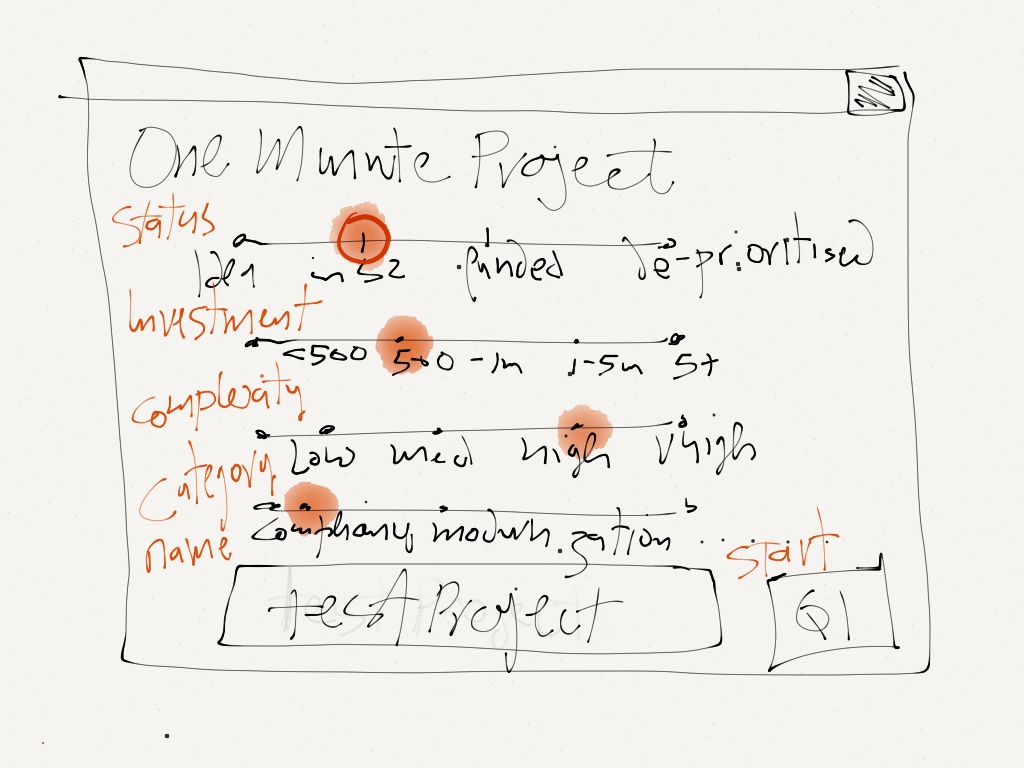 One Minute Project
Status
Idea in S2 funded De-prioritised
Investment
<500 500-1m 1-5m 5+
Complexity
Low med high Vhigh
Category
modernization ....
name
Start
test Project Q1